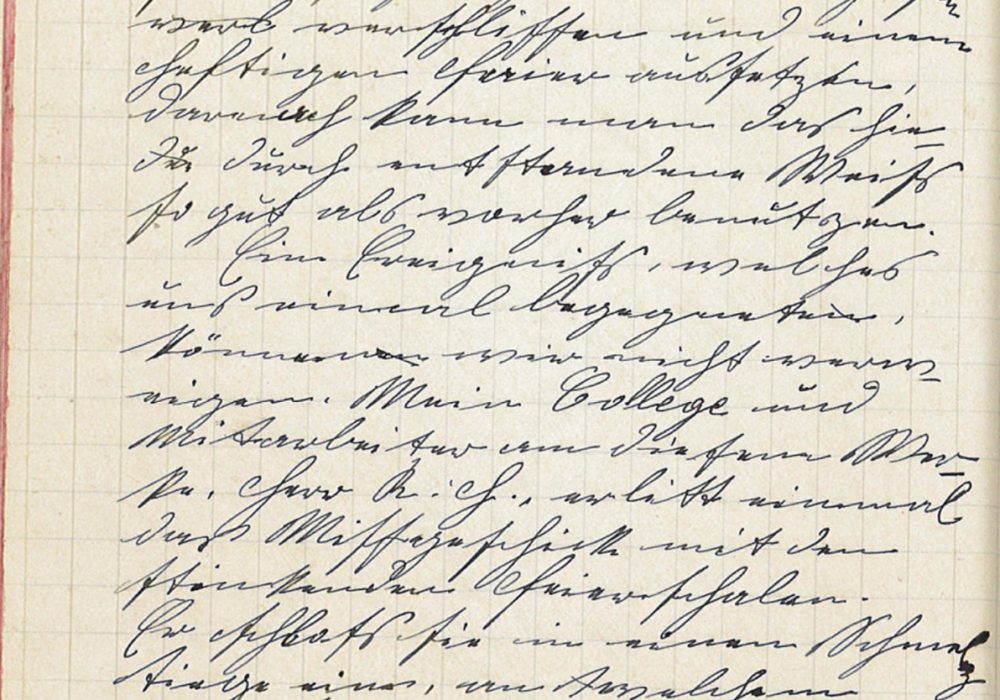 werk verschliffen und einem
heftigen Feier aussetzen,
darnach kann man das hie-
durch entstandene Weiss
so gut als vorher benutzen.
Ein Ereigniss, welches
uns einmal begegnete,
können wir nicht verw-
eigen. Mein College und
Mitarbeiter an diesem Wer-
ke, Herr R. H., erlitt einmal
das Missgeschick mit den
stinkenden Eierschalen.
Er schloss sie in einen Schmelz
tiegel ein, an welchem